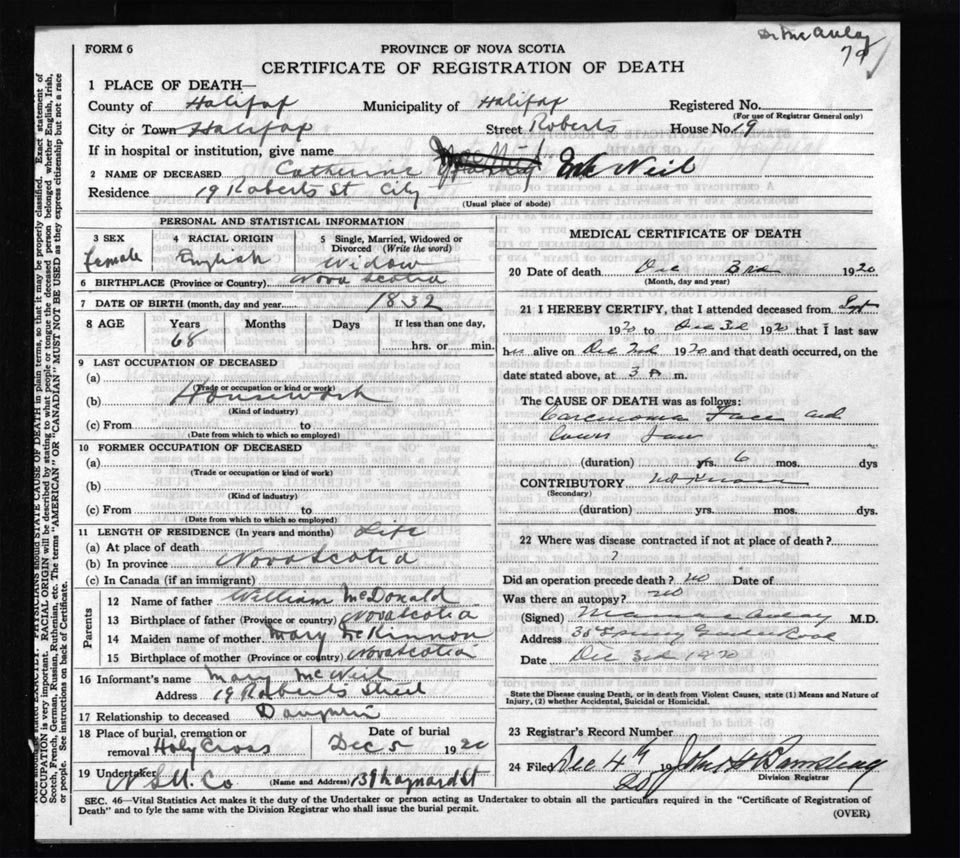 Dr Mc Aulay
79
FORM 6
PROVINCE OF NOVA SCOTIA
CERTIFICATE OF REGISTRATION OF DEATH
1 PLACE OF DEATH—
County of Halifax Municipality of Halifax Registered No.
(For use of Registrar General only)
City or Town Halifax Street Roberts House No. 19
If in hospital or institution, give name
2 NAME OF DECEASED Catherine Mc Neil
Residence 19 Roberts St City
(Usual place of abode)
PERSONAL AND STATISTICAL INFORMATION
3 SEX 4 RACIAL ORIGIN 5 Single, Married, Widowed or Divorced (Write the word)
female English Widow
6 BIRTHPLACE (Province or Country) Nova Scotia
7 DATE OF BIRTH (month, day and year) 1832
8 AGE Years Months Days If less than one day,
68 hrs. or min.
9 LAST OCCUPATION OF DECEASED
(a)
(Trade or occupation or kind or work)
(b) Housework
(Kind of industry)
(c) From to
(Date from which to which so employed)
10 FORMER OCCUPATION OF DECEASED
(a)
(Trade or occupation or kind of work)
(b)
(Kind of Industry)
(c) From to
(Date from which to which so employed)
11 LENGTH OF RESIDENCE (In years and months) Life
(a) At place of death
(b) In province Nova Scotia
(c) In Canada (if an immigrant)
Parents
12 Name of father William McDonald
13 Birthplace of father (Province or country) Nova Scotia
14 Maiden name of mother Mary McKinnon
15 Birthplace of mother (Province or country) Nova Scotia
16 Informant's name Mary McNeil
Address 19 Roberts Street
17 Relationship to deceased Daughter
18 Place of burial, cremation or removal Holy Cross
Date of burial
Dec 5 1920
19 Undertaker N S U. Co (Name and Address) 139 Maynard St
MEDICAL CERTIFICATE OF DEATH
20 Date of death Dec 3rd 1920
(Month, day and year)
21 I HEREBY CERTIFY, that I attended deceased from Sept
1920 to Dec 3d 1920 that I last saw
her alive on Dec 2nd 1920 and that death occurred, on the
date stated above, at 3 A m.
The CAUSE OF DEATH was as follows:
Carcinoma Face and
lower Jaw
(duration) yrs. 6 mos. dys
CONTRIBUTORY
(Secondary)
(duration) yrs. mos. dys.
22 Where was disease contracted if not at place of death?
?
Did an operation precede death? no Date of
Was there an autopsy? no
(Signed) M.D.
Address Spring Garden Road
Date Dec 3d 1920
State the Disease causing Death, or in death from Violent Causes, state (1) Means and Nature of
Injury, (2) whether Accidental, Suicidal or Homicidal.
23 Registrar's Record Number
24 Filed Dec 4th 1920
Division Registrar
SEC. 46—Vital Statistics Act makes it the duty of the Undertaker or person acting as Undertaker to obtain all the particulars required in the "Certificate of Registration of
Death" and to fyle the same with the Division Registrar who shall issue the burial permit.
(OVER)
PHYSICIANS should STATE CAUSE OF DEATH in plain terms, so that it may be properly classified. Exact statement of
OCCUPATION is very important. RACIAL ORIGIN will be described by stating to what people or tongue the deceased person belonged whether English, Irish,
Scotch, French, German, Russian, Ruthenian, etc. The terms "AMERICAN" OR "CANADIAN" MUST NOT BE USED as they express citizenship but not a race
or people. See instructions on back of Certificate.